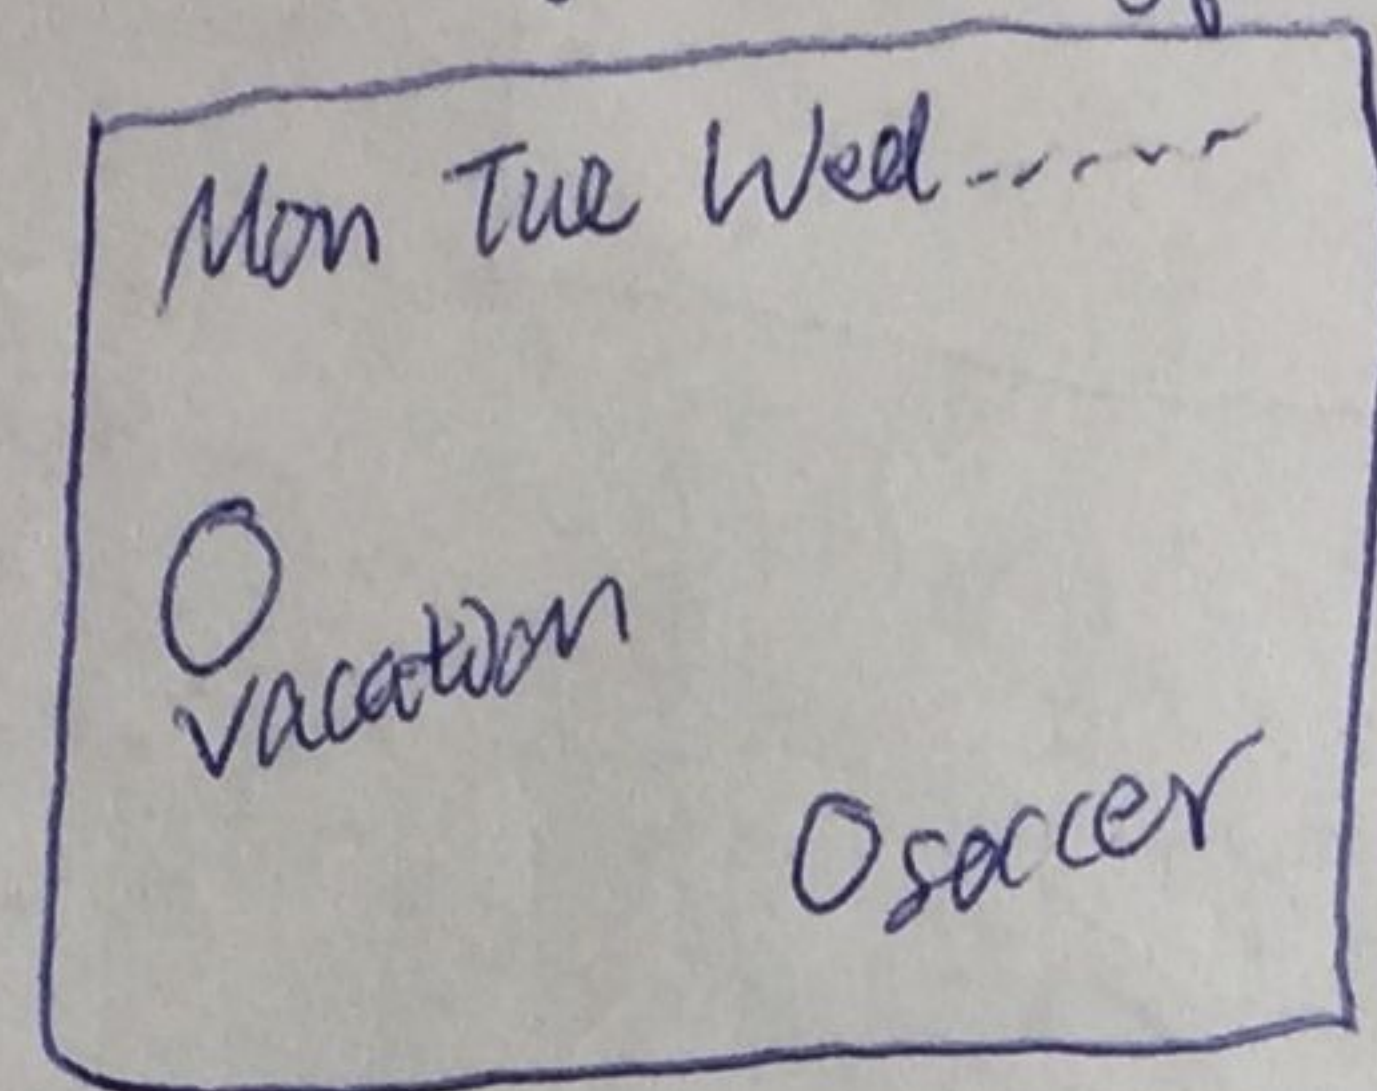 Mon Tue Wed------
vacation
soccer